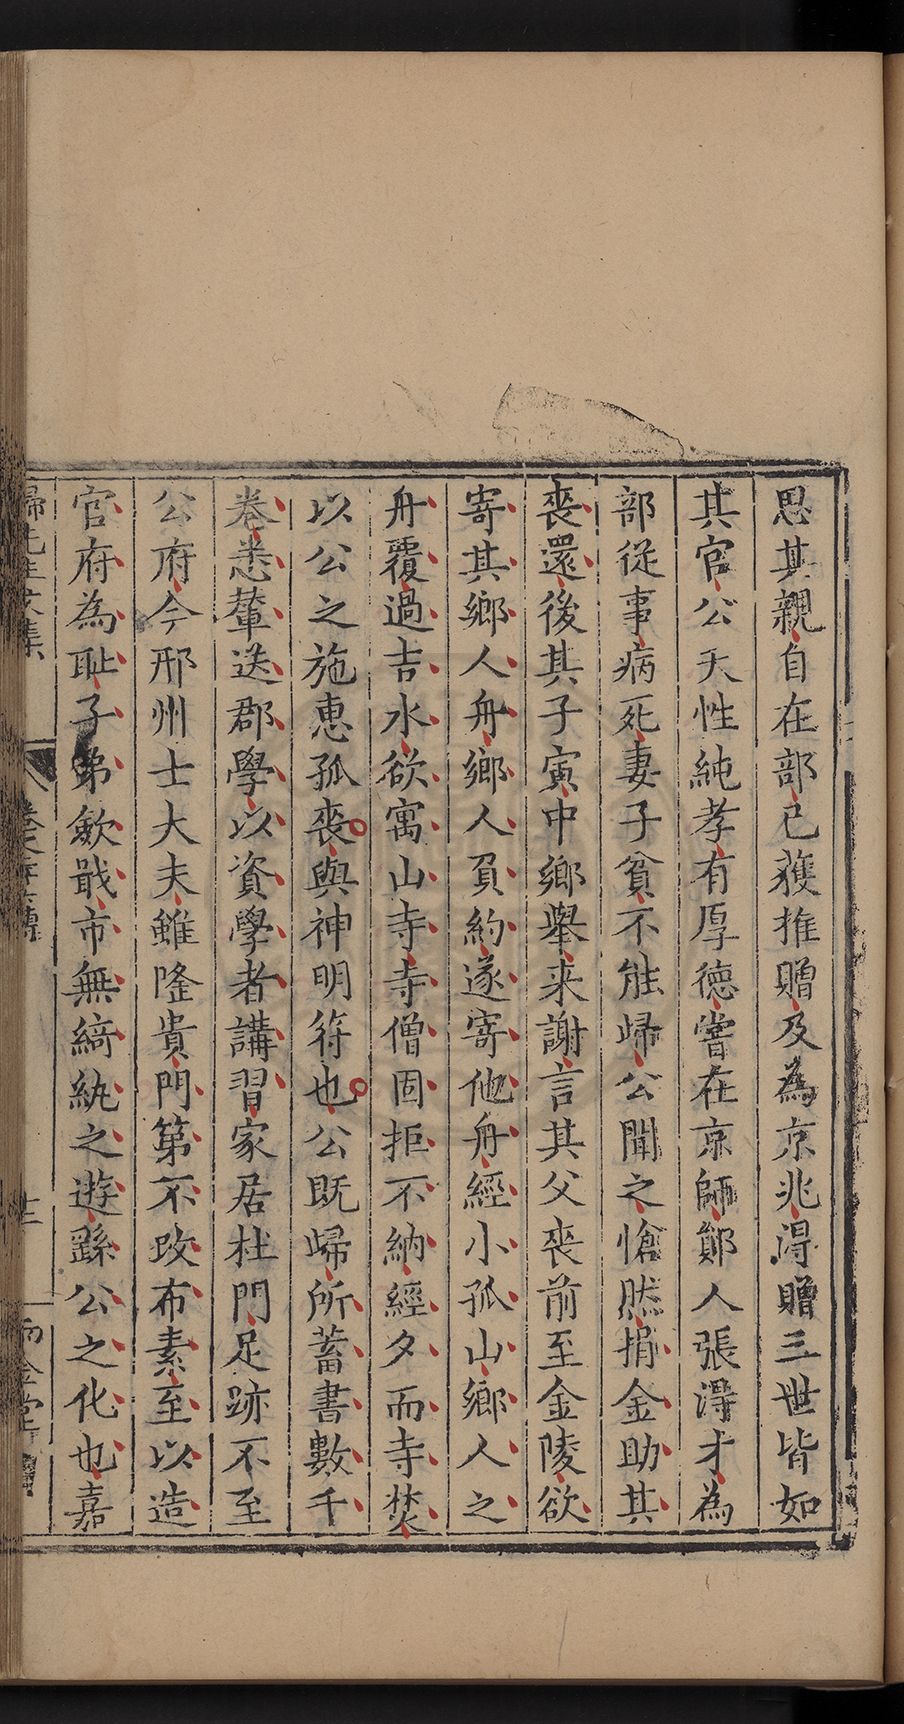 思其親自在部已獲推贈及為京兆得贈三世皆如
其官公天性純孝有厚德嘗在京師鄖人張淂才為
部從事病死妻子貧不能歸公聞之愴然捐金助其
喪還後其子寅中鄉舉来謝言其父喪前至金陵欲
寄其鄉人舟鄉人負約遂寄他舟經小孤山鄉人之
舟覆過吉水欲寓山寺寺僧固拒不納經夕而寺焚
以公之施惠孤喪與神明符也公既歸所蓄書數千
卷悉輦送郡學以資學者講習家居杜門足跡不至
公府今邢州士大夫雖隆貴門第不改布素至以造
官府為耻子弟歛戢市無綺紈之遊繇公之化也嘉
歸先生文集